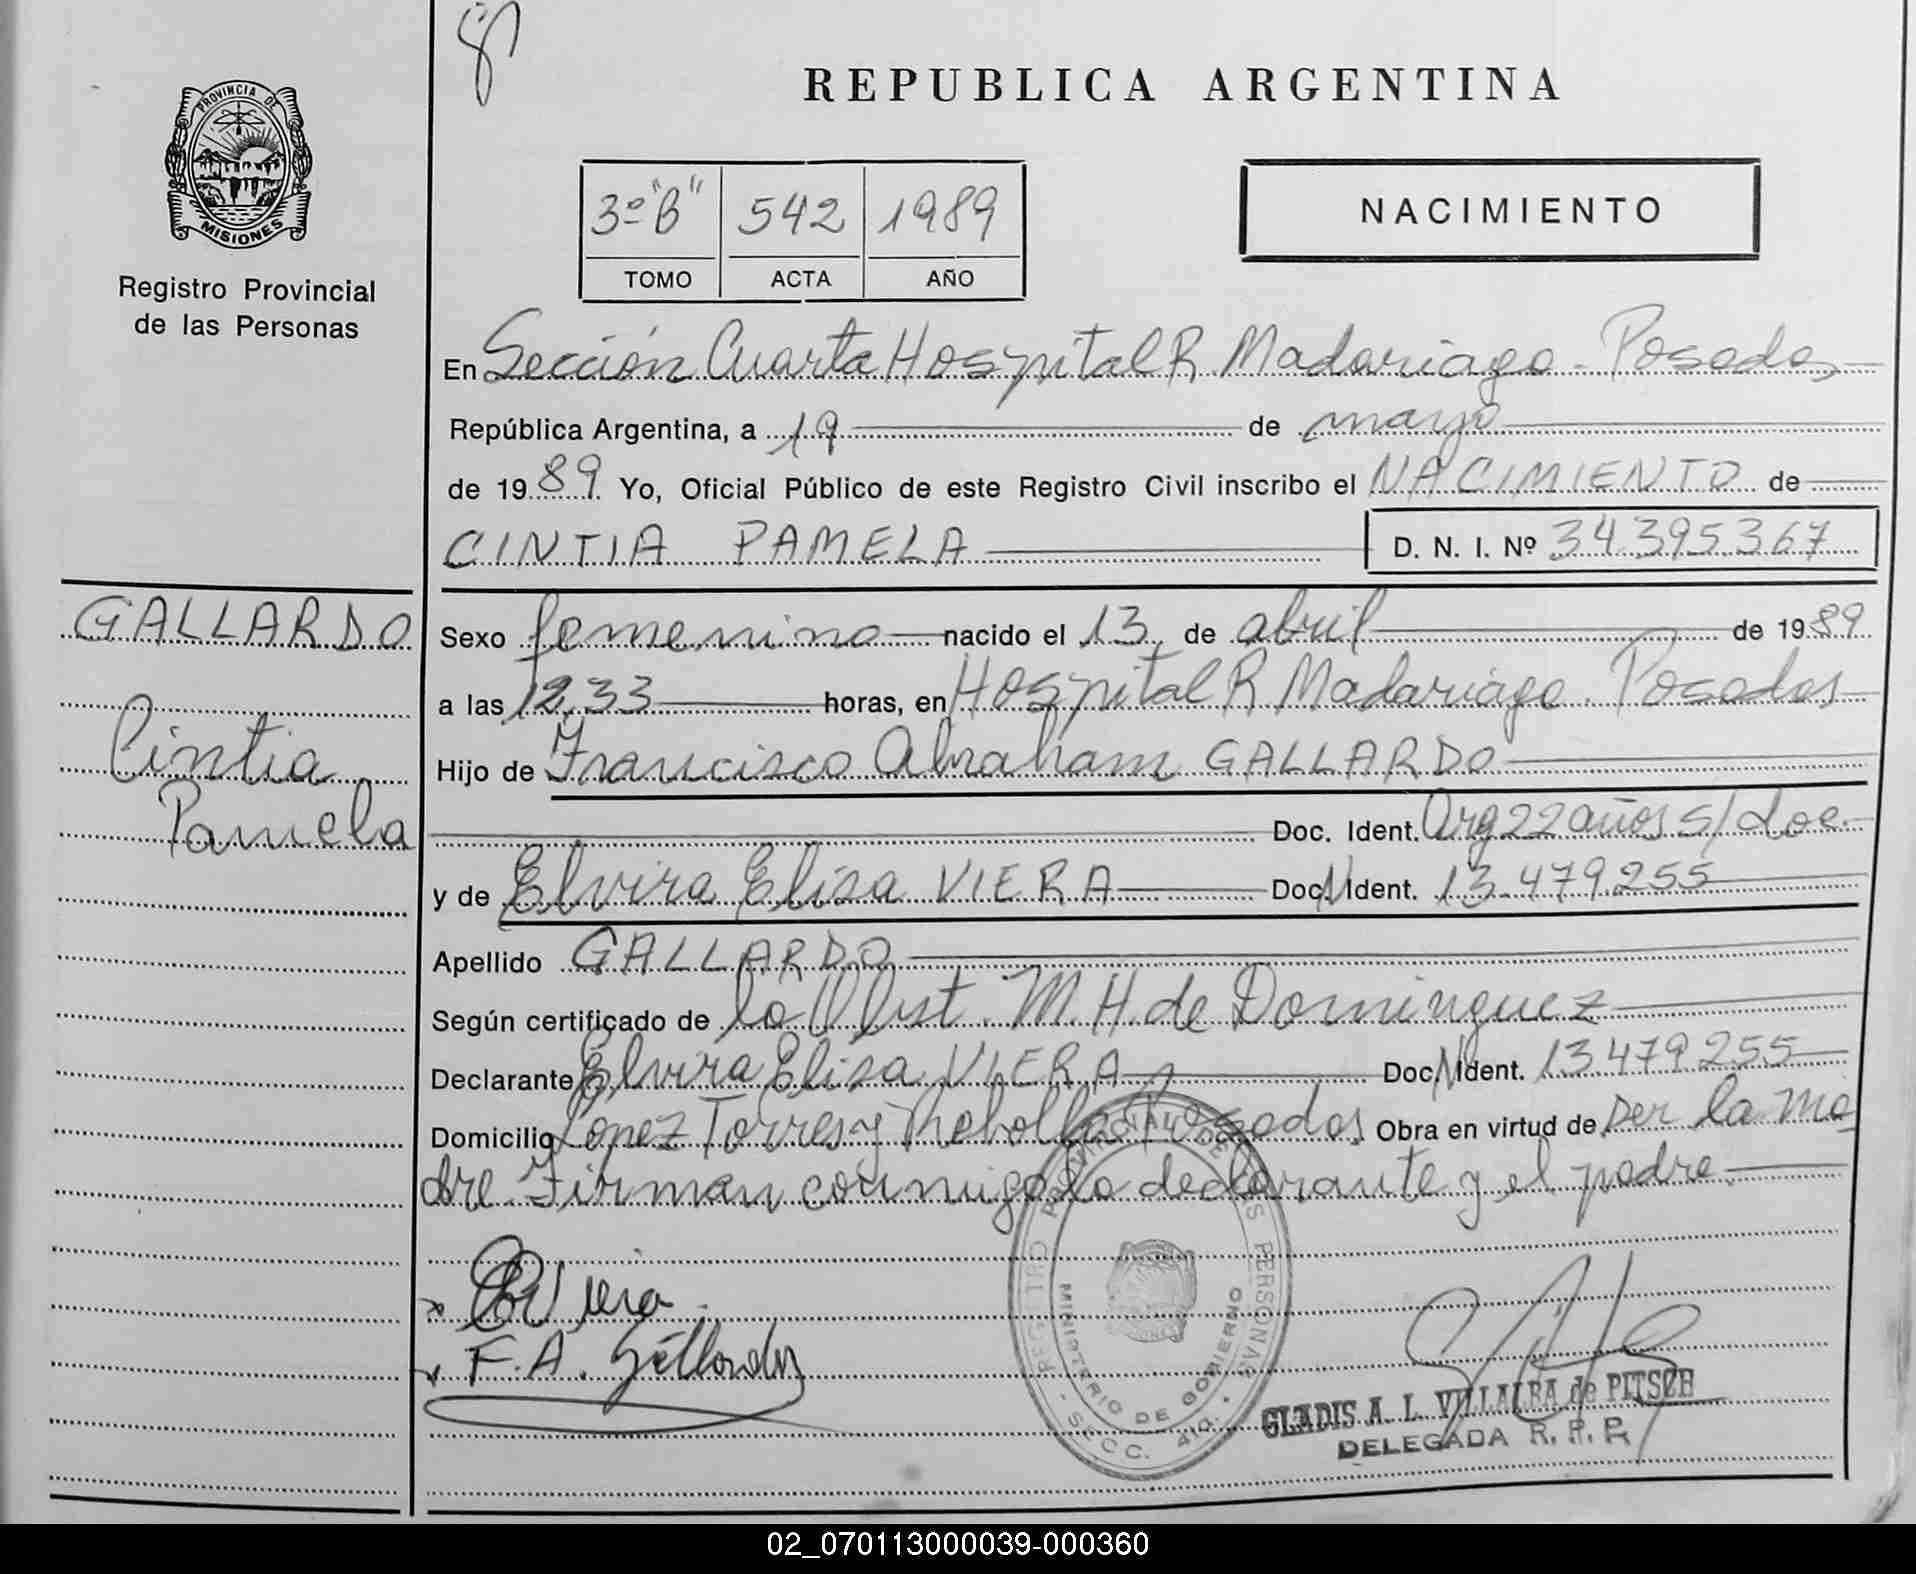 REPUBLICA ARGENTINA
PROVINCIA DE
MISIONES
Registro Provincial
de las Personas
3º "B" 542 1989
TOMO ACTA AÑO
NACIMIENTO
En Sección Cuarta Hospital R. Madariaga - Posadas
República Argentina, a 19 de mayo
de 1989 Yo, Oficial Público de este Registro Civil inscribo el NACIMIENTO de
CINTIA PAMELA D. N. I. Nº 34.395.367
GALLARDO
Cintia
Pamela
Sexo femenino nacido el 13 de abril de 1989
a las 12,33 horas, en Hospital R. Madariaga. Posadas
Hijo de Francisco Abraham GALLARDO
Doc. Ident. Arg 22 años s/doc.
y de Elvira Elisa VIERA Doc. Ident. 13.479.255
Apellido GALLARDO
Según certificado de la Obst. M. H. de Dominguez
Declarante Elvira Elisa VIERA Doc. Ident. 13.479.255
Domicilio Lopez Torres y Posadas. Obra en virtud de ser la ma
dre. Firman conmigo la declarante y el padre.
Viera
F. A. Gallardo
REGISTRO PROVINCIAL DE LAS PERSONAS
MINISTERIO DE GOBIERNO
SECC. 4ta.
GLADIS A. L. VILLALBA de PITSCH
DELEGADA R. P. P.
02_070113000039-000360